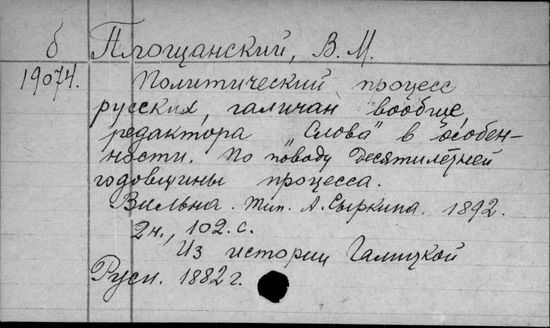 б Площанский, В. М.
19074. Политический процесс
русских галичан вообще,
редактора „Слова" в особен-
ности. По поводу десятилетней
годовщины процесса.
Вильна. Тип. А. Сыркина. 1892.
2н., 102. с.
Из истории Галицкой
Руси. 1882 г.